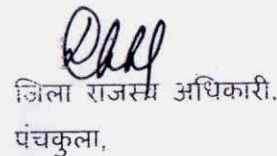 जिला राजस्व अधिकारी,
पंचकुला,